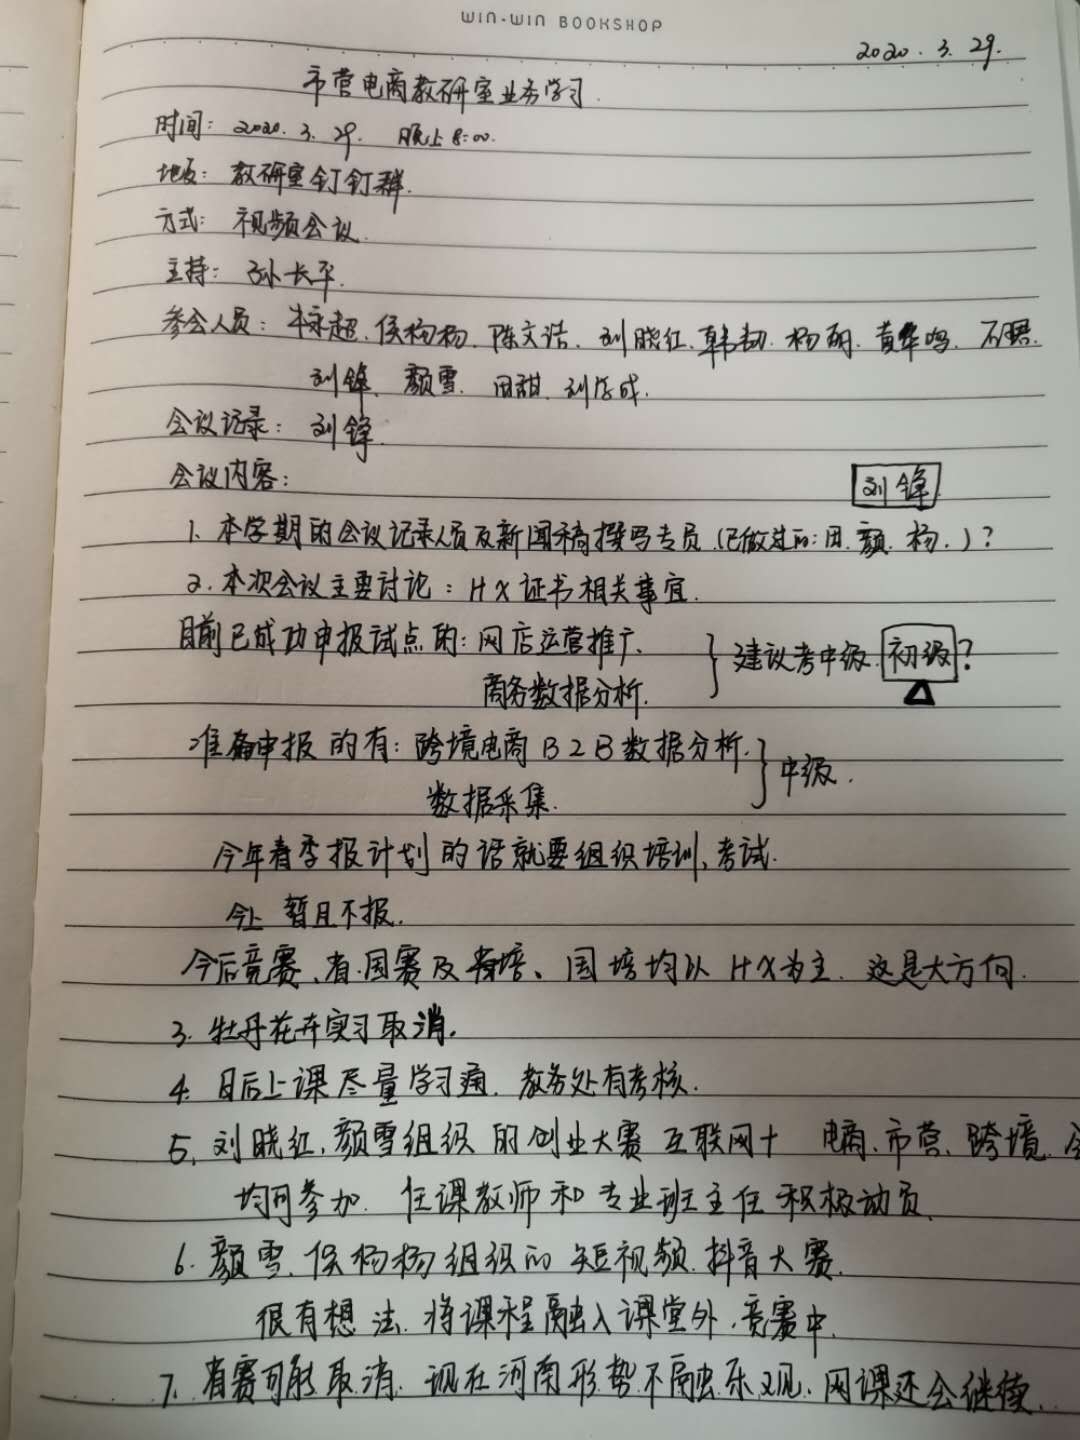 WIN-WIN BOOKSHOP
2020.3.29.
市营电商教研室业务学习.
时间: 2020.3.29. 晚上8:00.
地点: 教研室钉钉群.
方式: 视频会议.
主持: 孙长平.
参会人员: 超. 侯杨杨. 陈文浩. 刘晓红. 韩韧. 杨丽. 黄华鸣. 石
刘锋、颜雪. 田甜. 刘成.
会议记录: 刘锋.
会议内容:
刘锋
1. 本学期的会议记录人员及新闻稿撰写专员.(已做过的: 田. 颜. 杨.)?
2. 本次会议主要讨论: 1+X证书相关事宜.
目前已成功申报试点的: 网店运营推广、 } 建议考中级. 初级?
商务数据分析.
准备申报的有: 跨境电商B2B数据分析. } 中级.
数据采集.
今年春季报计划的话就要组织培训、考试.
暂且不报.
今后竞赛、省.国赛及省培、国培均以1+X为主. 这是大方向.
3. 牡丹花卉实习取消.
4. 日后上课尽量学习通. 教务处有考核.
5. 刘晓红. 颜雪组织的创业大赛 互联网+ 电商. 市营. 跨境. 会
均可参加. 任课教师和专业班主任积极动员.
6. 颜雪. 侯杨杨组织的短视频. 抖音大赛.
很有想法. 将课程融入课堂外. 竞赛中.
7. 省赛可能取消. 现在河南形势不融乐观. 网课还会继续.